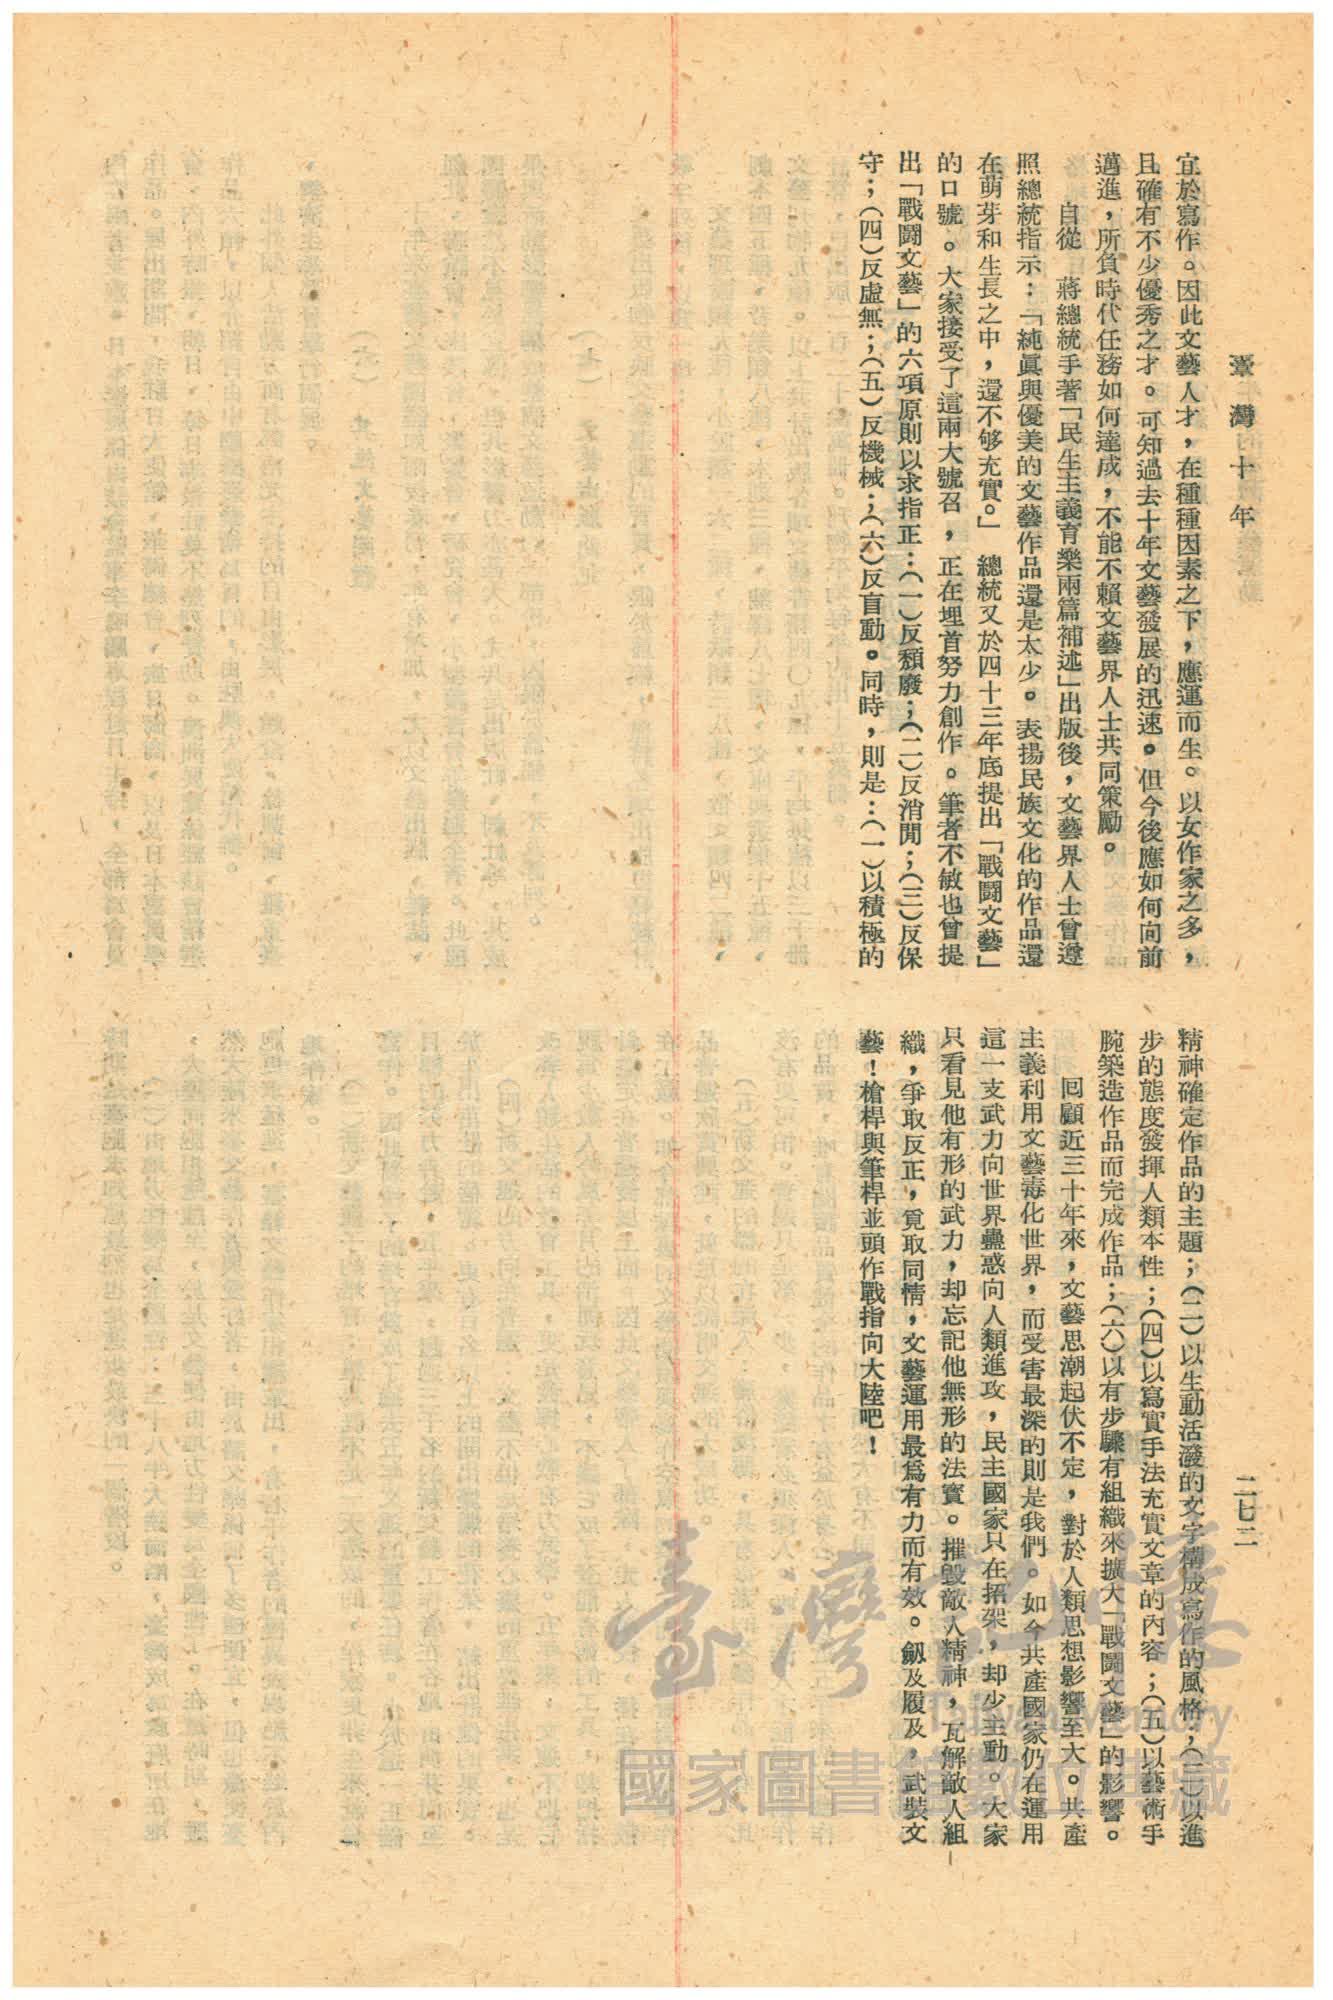 臺灣十年
二七三
宜於寫作。因此文藝人才，在種種因素之下，應運而生。以女作家之多，
且確有不少優秀之才。可知過去十年文藝發展的迅速。但今後應如何向前
邁進，所負時代任務如何達成，不能不賴文藝界人士共同策勵。
自從　蔣總統手著「民生主義育樂兩篇補述」出版後，文藝界人士曾遵
照總統指示：「純眞與優美的文藝作品還是太少。表揚民族文化的作品還
在萌芽和生長之中，還不够充實。」　總統又於四十三年底提出「戰鬪文藝」
的口號。大家接受了這兩大號召，正在埋首努力創作。筆者不敏也曾提
出「戰鬪文藝」的六項原則以求指正：（一）反頽廢；（二）反消閒；（三）反保
守；（四）反虛無；（五）反機械；（六）反盲動。同時，則是：（一）以積極的
精神確定作品的主題；（二）以生動活潑的文字構成寫作的風格；（三）以進
步的態度發揮人類本性；（四）以寫實手法充實文章的內容；（五）以藝術手
腕築造作品而完成作品；（六）以有步驟有組織來擴大「戰鬪文藝」的影響。
囘顧近三十年來，文藝思潮起伏不定，對於人類思想影響至大。共產
主義利用文藝毒化世界，而受害最深的則是我們。如今共產國家仍在運用
這一支武力向世界蠱惑向人類進攻，民主國家只在招架，却少主動。大家
只看見他有形的武力，却忘記他無形的法寶。摧毀敵人精神，瓦解敵人組
織，爭取反正，覓取同情，文藝運用最爲有力而有效。劔及履及，武裝文
藝！槍桿與筆桿並頭作戰指向大陸吧！
臺灣記憶
Taiwan Memory
國家圖書館數位典藏